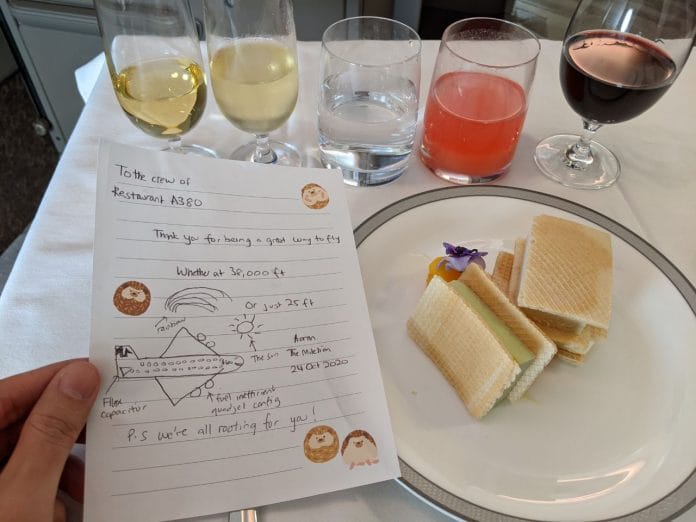 To the crew of
Restaurant A380
Thank you for being a great way to fly
Whether at 38,000 ft
Or just 25 ft
rainbow
The sun
Aaron
The MileLion
24 Oct 2020
Flux
capacitor
fuel inefficient
quadjet config
P.S we're all rooting for you!